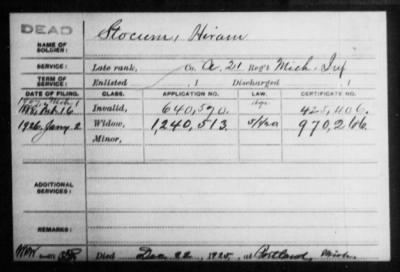 DEAD
NAME OF SOLDIER: Slocum, Hiram
SERVICE: Late rank, Co. A. 21 Reg't Mich. Inf
TERM OF SERVICE: Enlisted , 1 Discharged , 1
DATE OF FILING. CLASS. APPLICATION NO. LAW. CERTIFICATE NO.
Invalid, 640,570. Age 428,406.
1926, Jany. 2 Widow, 1,240,513 5/1/20 970,266.
Minor,
ADDITIONAL SERVICES:
REMARKS:
Died Dec. 22, 1925, at Portland, Mich.